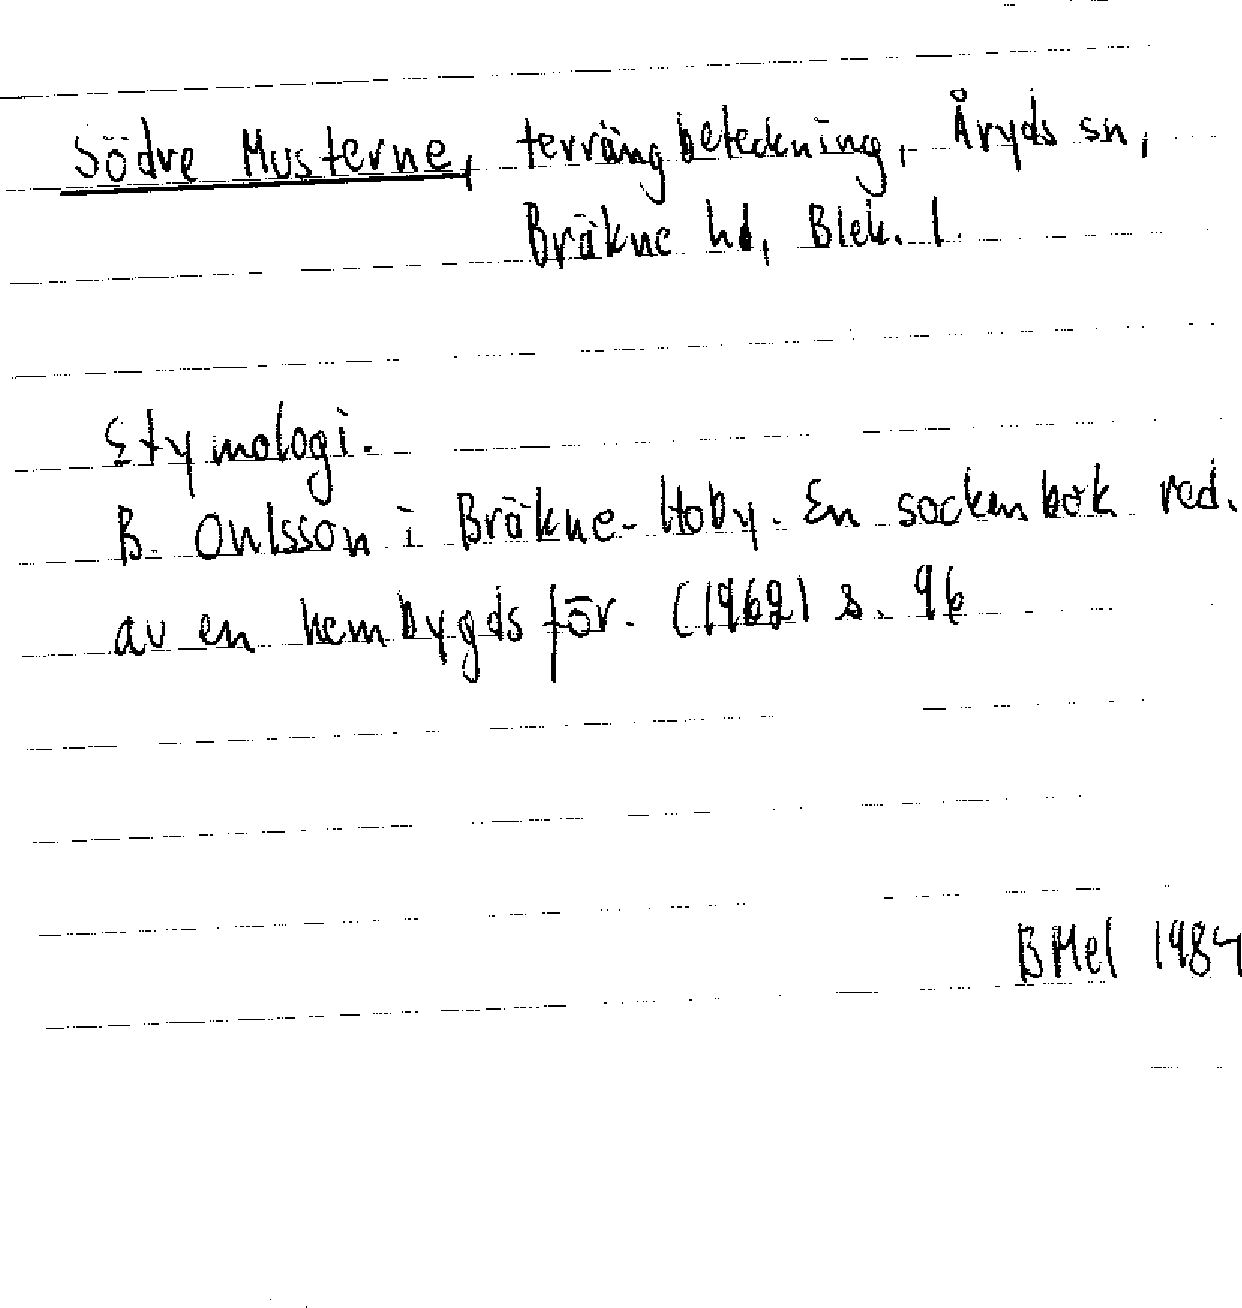 Södre Musterne, terrängbeteckning, Åryds sn,
Bräkne hd, Blek. l.
Etymologi.
B. Ohlsson i Bräkne-Hoby. En sockenbok red.
av en hembygdsför. (1962) s. 96
BMel 1984